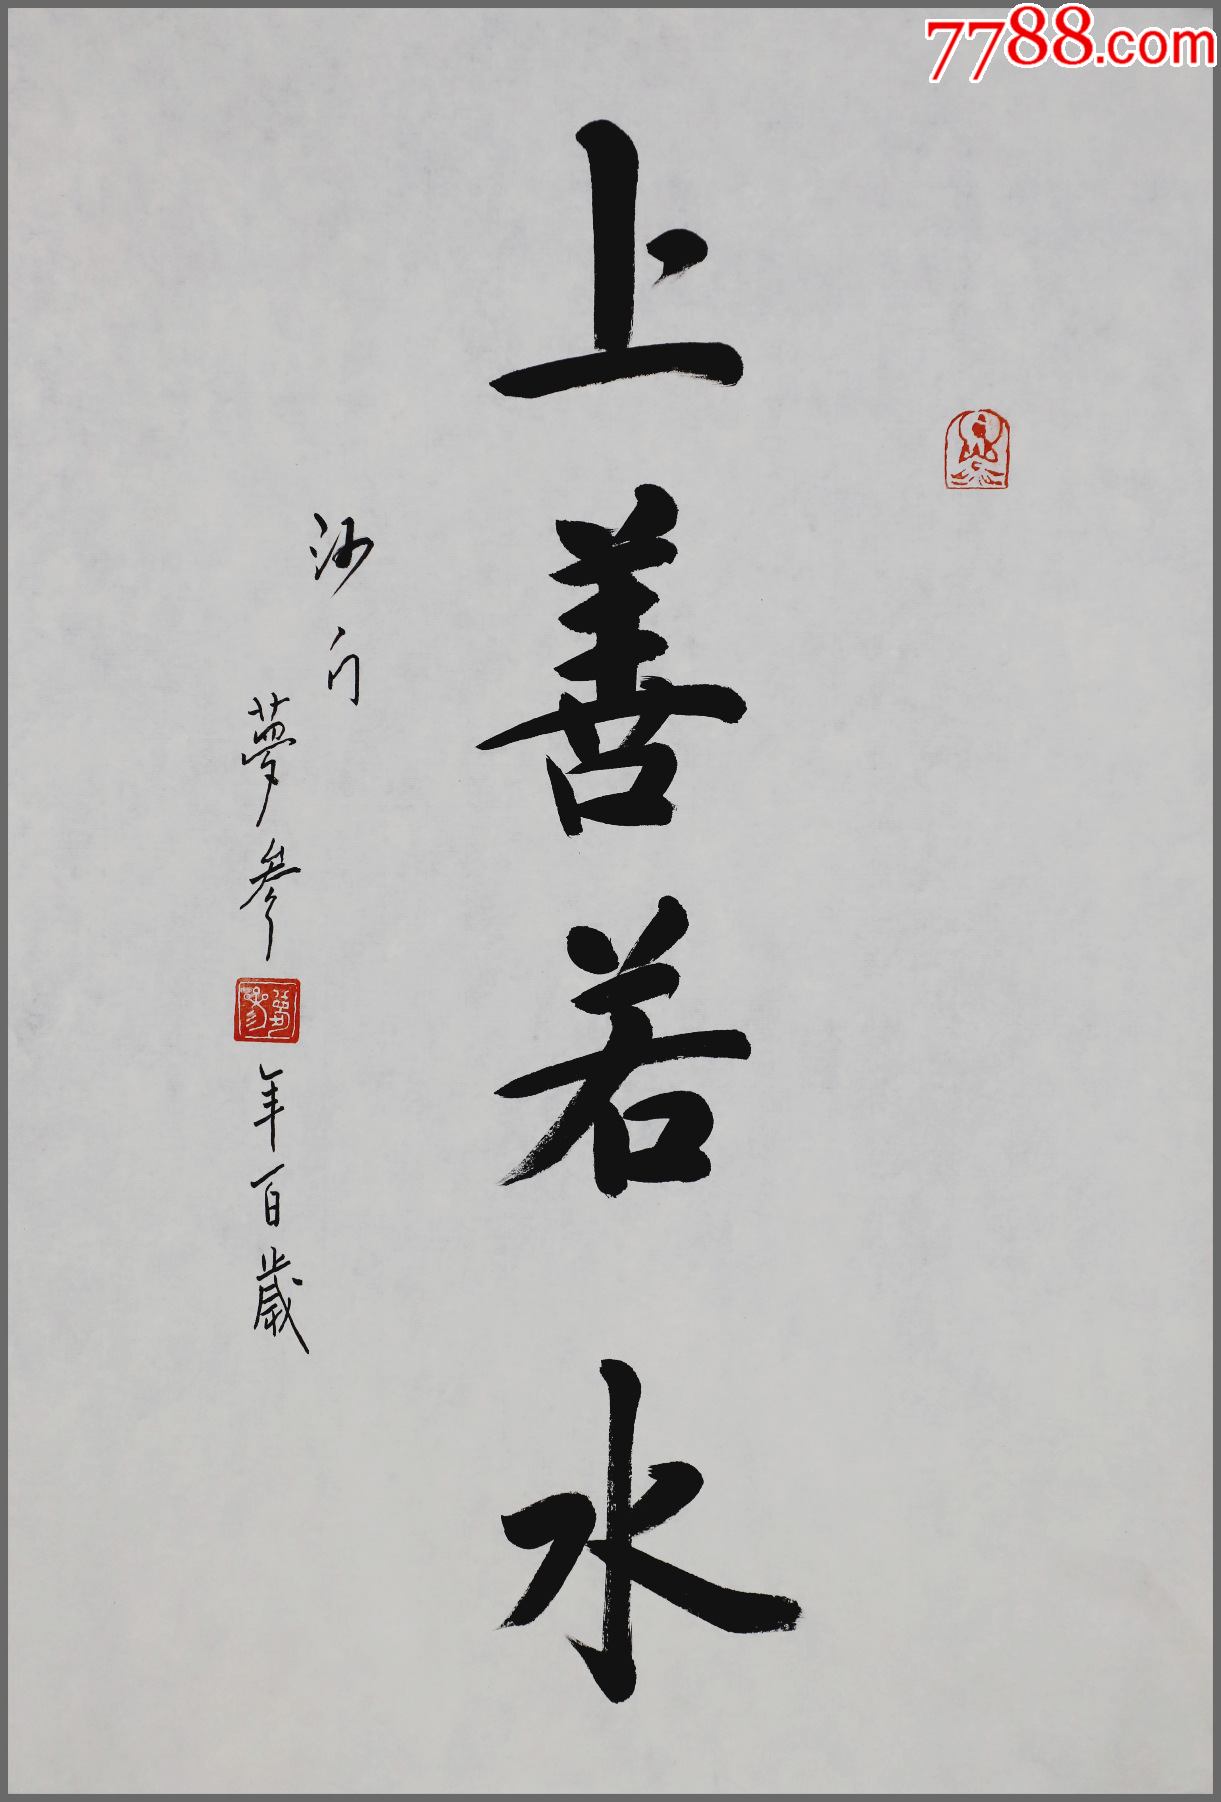 7788.com
上善若水
沙门
夢參
年百歲